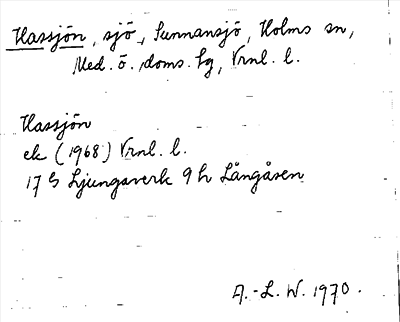 Hassjön, sjö, Sunnansjö, Holms sn,
Med. ö. doms. sg, Vrnl. l.
Hassjön
ek (1968) Vrnl. l.
17 G Ljungaverk 9 h Långåsen
A.-L. W. 1970.